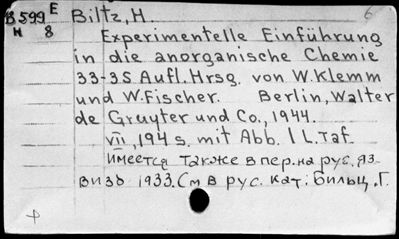 B 599 E Biltz, H. 6
H 8 Experimentelle Einführung
in die anorganische Chemie
33-35 Aufl. Hrsg. von W. Klemm
und W. Fischer. Berlin, Walter
de Gruyter und Co., 1944.
VII, 194 s. mit Abb. 1 L. Taf.
Имеется также в пер. на рус. яз.
в изд 1933. См в рус. кат: Бильц, Г.